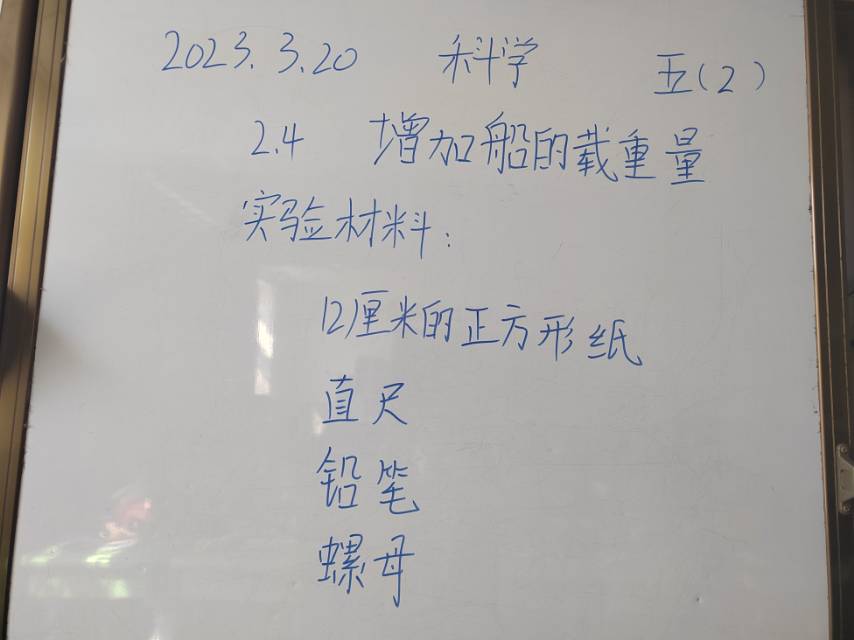 2023.3.20 科学 五(2)
2.4 增加船的载重量
实验材料:
12厘米的正方形纸
直尺
铅笔
螺母